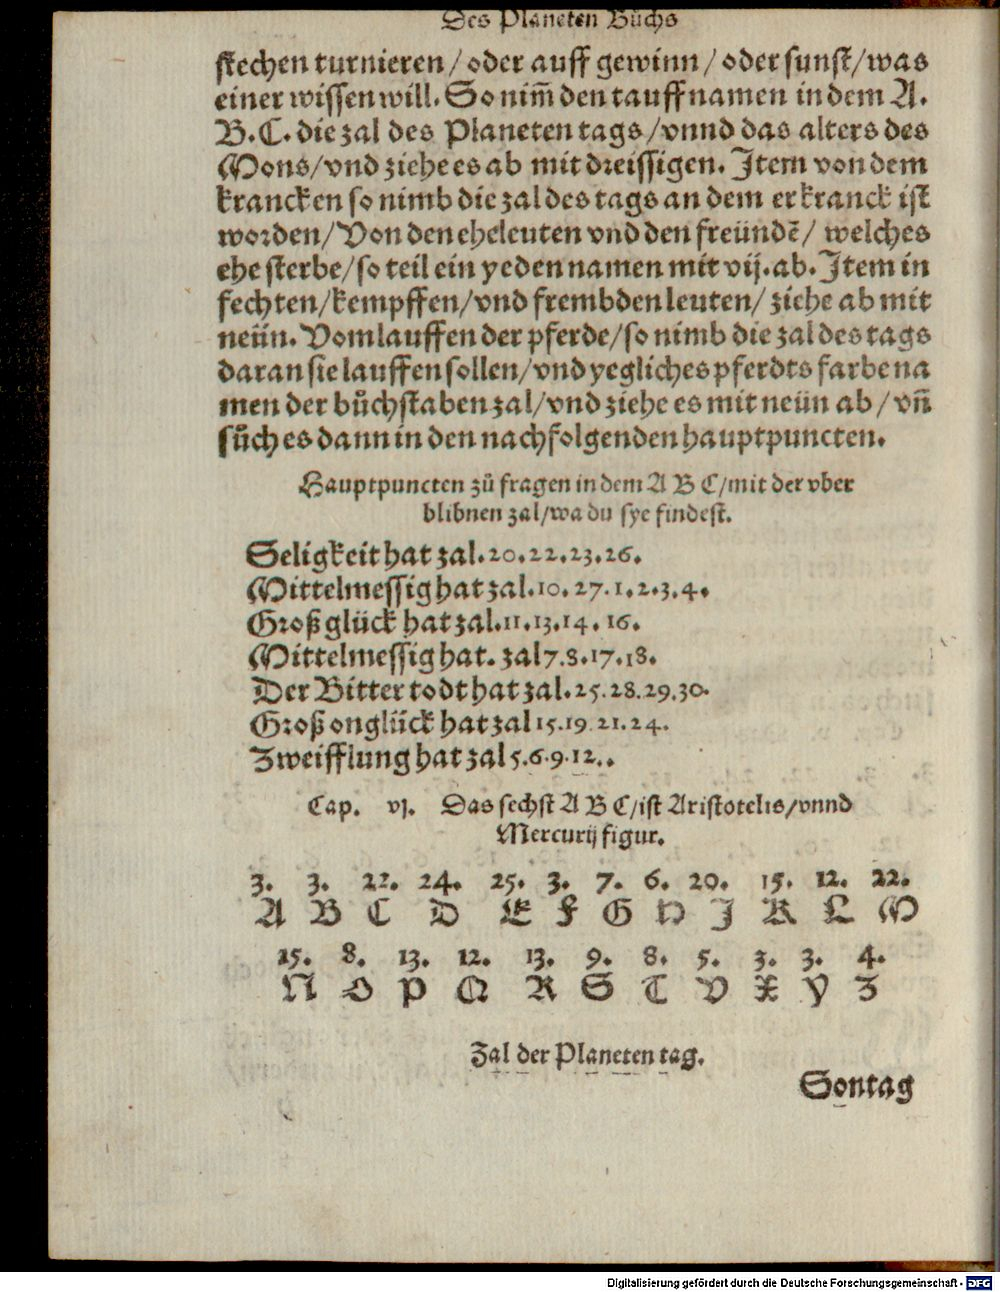 Des Planeten Bůchs
stechen turnieren / oder auff gewinn / oder sunst / was
einer wissen will. So nim̃ den tauffnamen in dem A.
B. C. die zal des Planeten tags / vnnd das alters des
Mons / vnd ziehe es ab mit dreissigen. Item von dem
krancken so nimb die zal des tags an dem er kranck ist
worden / Von den eheleuten vnd den freündẽ / welches
ehe sterbe / so teil ein yeden namen mit vij. ab. Item in
fechten / kempffen / vnd frembden leuten / ziehe ab mit
neün. Vom lauffen der pferde / so nimb die zal des tags
daran sie lauffen sollen / vnd yegliches pferdts farbe na
men der bůchstaben zal / vnd ziehe es mit neün ab / vñ
sůch es dann in den nachfolgenden hauptpuncten.
Hauptpuncten zů fragen in dem A B C / mit der vber
blibnen zal / wa du sye findest.
Seligkeit hat zal. 20. 22. 23. 26.
Mittelmessig hat zal. 10. 27. 1. 2. 3. 4.
Groß glück hat zal. 11. 13. 14. 16.
Mittelmessig hat. zal 7. 8. 17. 18.
Der Bitter todt hat zal. 25. 28. 29. 30.
Groß onglück hat zal 15. 19. 21. 24.
Zweifflung hat zal 5. 6. 9. 12..
Cap. vj. Das sechst A B C / ist Aristotelis / vnnd
Mercurij figur.
3. 3. 22. 24. 25. 3. 7. 6. 20. 15. 12. 22.
A B C D E F G H J K L M
15. 8. 13. 12. 13. 9. 8. 5. 3. 3. 4.
N O P Q R S T V X Y Z
Zal der Planeten tag.
Sontag
Digitalisierung gefördert durch die Deutsche Forschungsgemeinschaft - DFG